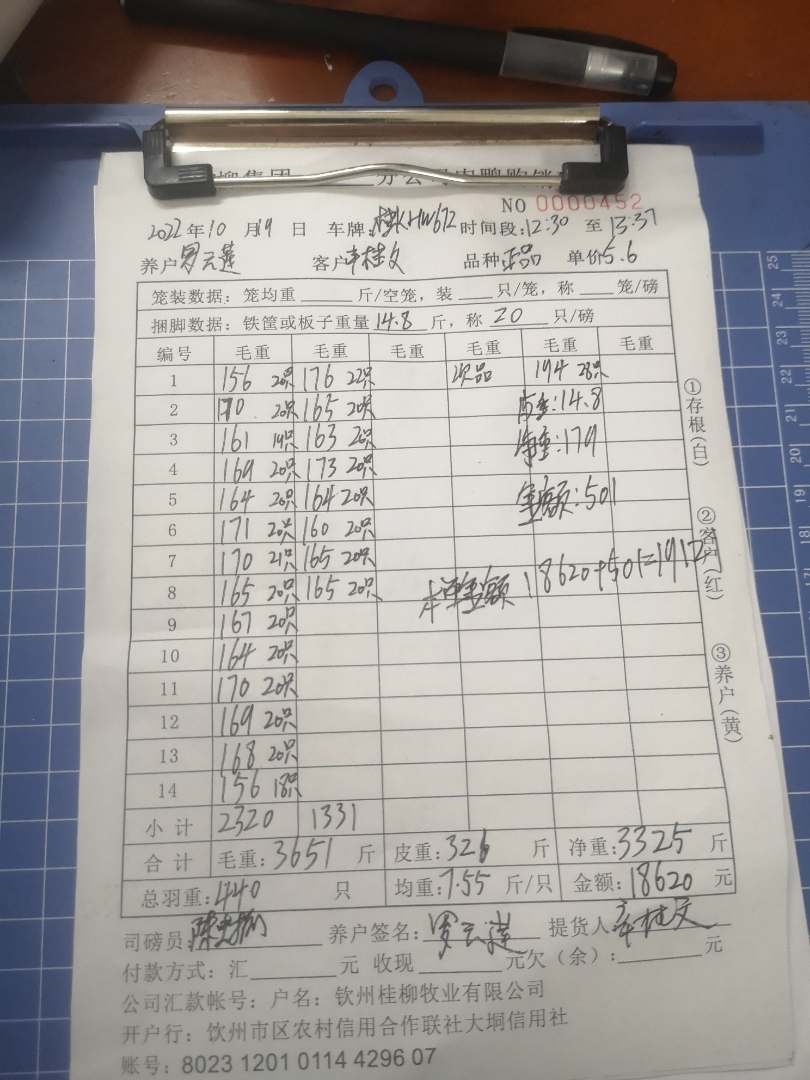 柳集团 分公司肉鸭购销
NO 0000452
2022年10月19日 车牌:桂KHW672 时间段:12:30 至 13:37
养户 罗云莲 客户 辛桂文 品种 正品 单价 5.6
笼装数据：笼均重 斤/空笼，装 只/笼，称 笼/磅
捆脚数据：铁筐或板子重量 14.8 斤，称 20 只/磅
编号 毛重 毛重 毛重 毛重 毛重 毛重
1 156 20只 176 22只 次品 194 28只
2 170 20只 165 20只 皮重:14.8
3 161 19只 163 20只 净重:179
4 169 20只 173 20只
5 164 20只 164 20只 金额:501
6 171 20只 160 20只
7 170 21只 165 20只
8 165 20只 165 20只 本单金额 18620+501=1912
9 167 20只
10 164 20只
11 170 20只
12 169 20只
13 168 20只
14 156 18只
小计 2320 1331
合计 毛重:3651 斤 皮重:326 斤 净重:3325 斤
总羽重:440 只 均重:7.55 斤/只 金额:18620 元
司磅员 养户签名: 罗云莲 提货人 辛桂文
付款方式：汇 元 收现 元欠（余）: 元
公司汇款帐号：户名：钦州桂柳牧业有限公司
开户行：饮州市区农村信用合作联社大垌信用社
账号：8023 1201 0114 4296 07
①存根(白)
②客户(红)
③养户(黄)
25
24
23
22
21
20
19
18
17